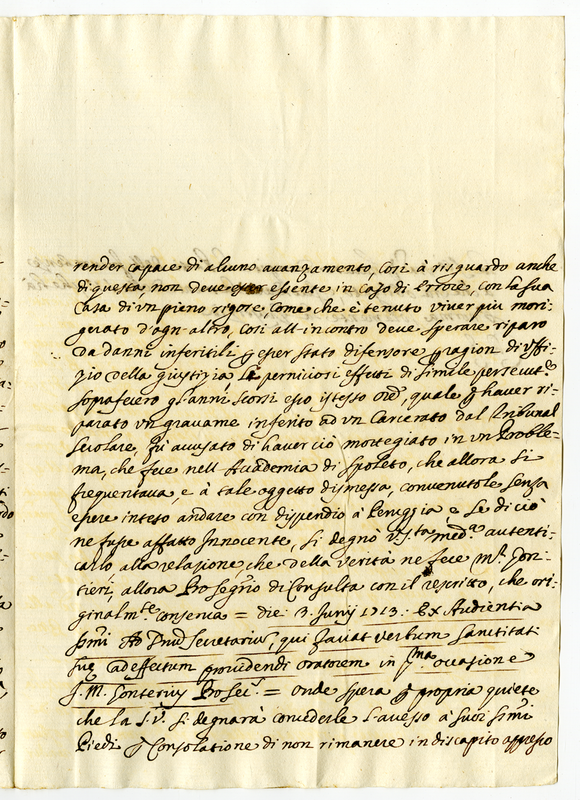 render capace di alcuno avanzamento, Così à risguardo anche
di questa non deve esser essente in cazo di Errore, con la sua
Casa di un pieno rigore, Come che è tenuto viver piu mori-
gerato d'ogn'altro, Così all'incontro deve sperare riparo
da danni inferitili p esser stato difensore p ragion di Uffi-
zio della giustizia, Li perniciosi effetti di simile persecut.e
soprafecero gl'anni scorsi esso istesso Ore, quale p haver ri-
parato un gravame inferito ad un Carcerato dal Tribunal
Secolare, fù accusato di haver ciò motegiato in un Proble-
ma, che fece nell'Accademia di Spoleto, che allora si
frequentava, e à tale oggetto dismessa, convenutole senza
essere inteso andare con dispendio à Perugia e Se di ciò
ne fusse affatto Innocente, si degnò V. S.ta med.a autenti-
carlo alla relazione che della verità ne fece M.r Gon-
tieri, allora Pro Segrio di Consulta con il rescritto, che ori-
ginalm.te conserva = die 3. Junij 1713. Ex Audientia
SSmi Ad Dnum Secretarium, qui faciat verbum Sanctitati
suæ ad effectum providendi oratorem in p.ma occasione
J. M. Gonterius Pro Sec.s = onde spera p propria quiete
che la S. V. si degnarà concederle l'accesso à suoi SSmi
Piedi p Consolatione di non rimanere in discapito appresso